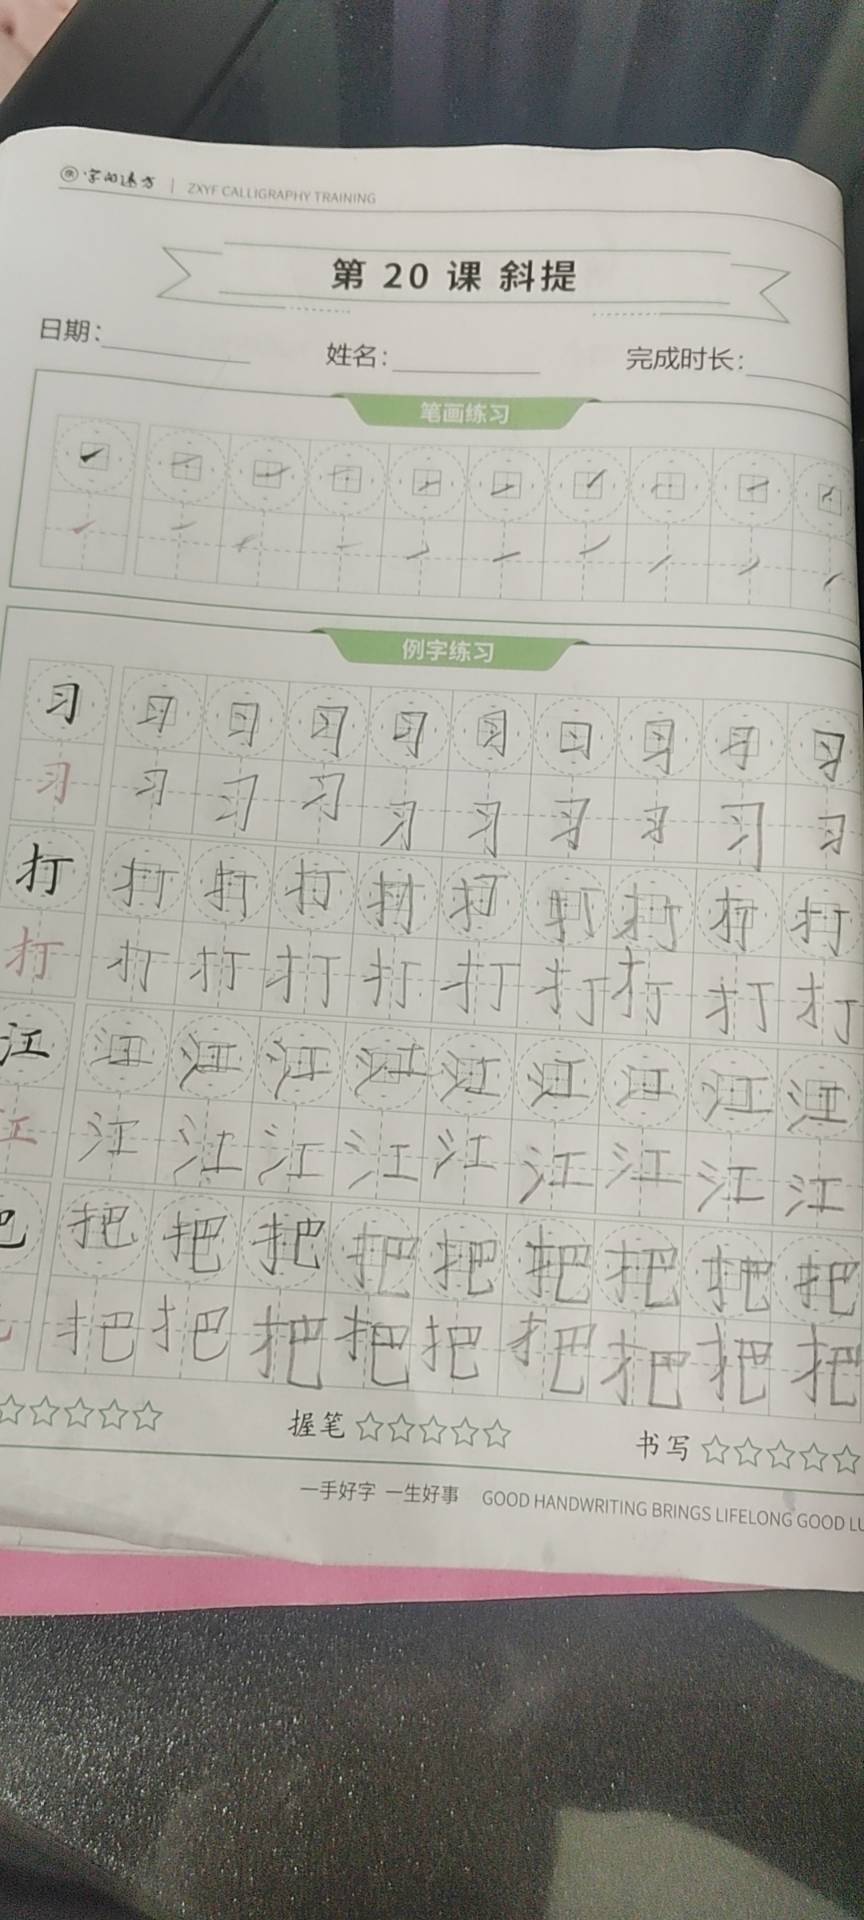 字向远方 | ZXYF CALLIGRAPHY TRAINING
第 20 课 斜提
日期: 姓名: 完成时长:
笔画练习
例字练习
习 习 习 习 习 习 习 习 习 习
习 习 习 习 习 习 习 习 习 习
打 打 打 打 打 打 打 打 打 打
打 打 打 打 打 打 打 打 打 打
江 江 江 江 江 江 江 江 江 江
江 江 江 江 江 江 江 江 江 江
把 把 把 把 把 把 把 把 把
把 把 把 把 把 把 把 把 把
握笔 书写
一手好字 一生好事 GOOD HANDWRITING BRINGS LIFELONG GOOD LU